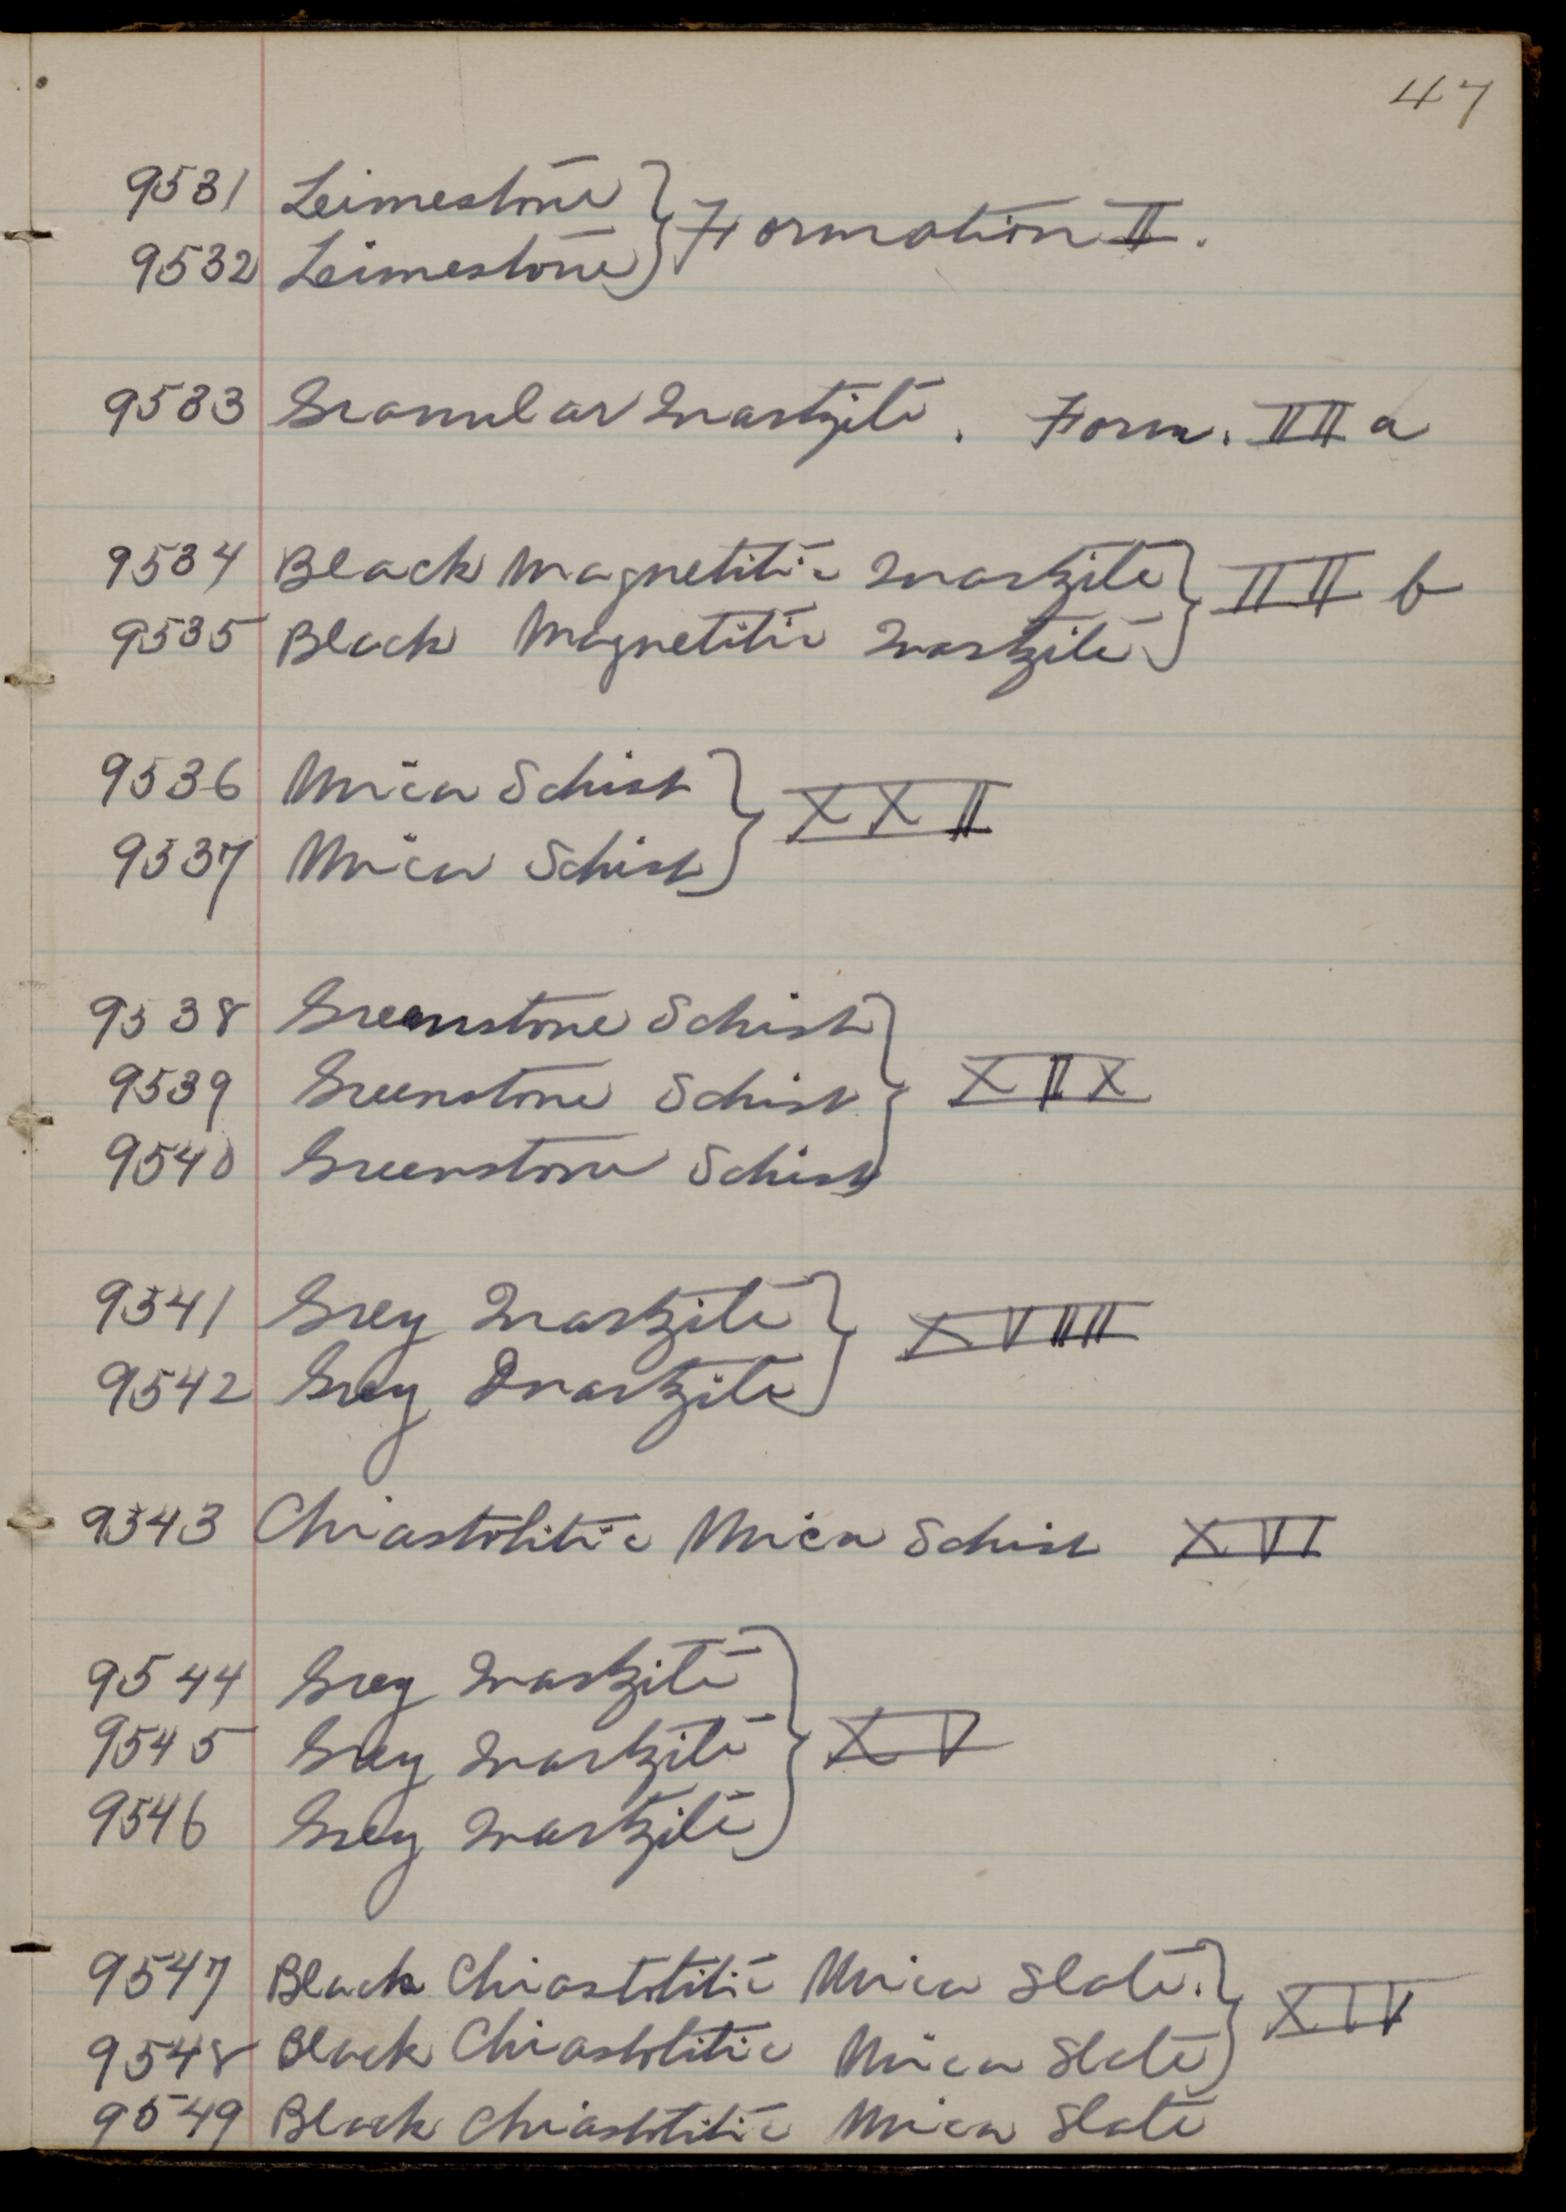 47
9531 Leimestone } Formation II.
9532 Leimestone }
9533 Granular Quartzite. Form. III a
9534 Black Magnetitic Quartzite } III b
9535 Black Magnetitic Quartzite }
9536 Mica Schist } XXII
9537 Mica Schist }
9538 Greenstone Schist }
9539 Greenstone Schist } XIX
9540 Greenstone Schist }
9541 Grey Quartzite } XVIII
9542 Grey Quartzite }
9543 Chiastolitic Mica Schist XVI
9544 Grey Quartzite }
9545 Grey Quartzite } XV
9546 Grey Quartzite }
9547 Black Chiastolitic Mica Slate. } XIV
9548 Black Chiastolitic Mica Slate }
9549 Black Chiastolitic Mica Slate